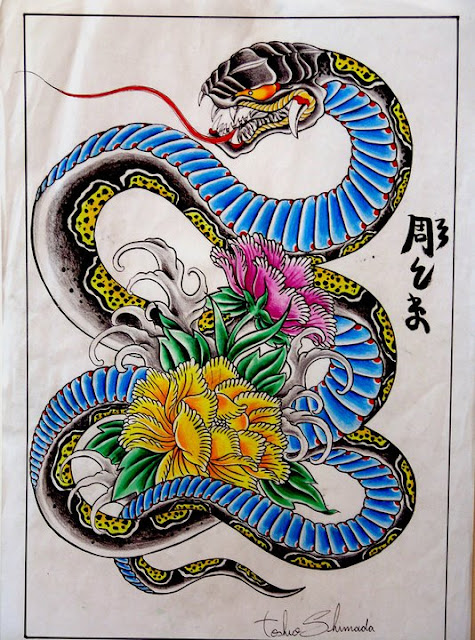 彫
Toshio Shimada